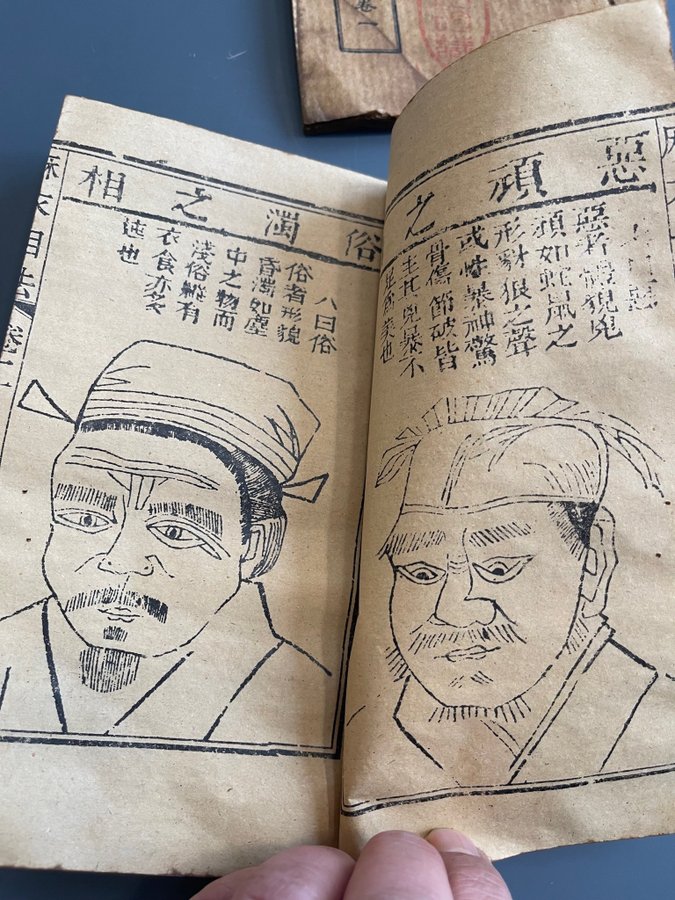 卷一
惡頑之
曰惡
惡者體貌兇
頑如蛇鼠之
形豺狼之聲
或性暴神驚
骨傷節破皆
主其兇暴不
也
俗濁之相
八曰俗
俗者形貌
昏濁如塵
中之物而
淺俗縱有
衣食亦多
迍也
麻衣相法